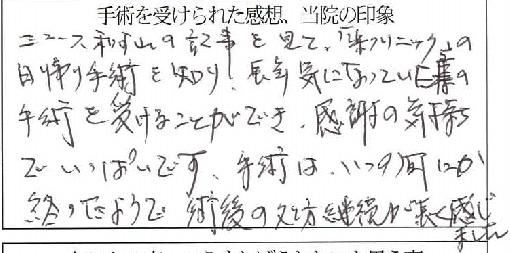 手術を受けられた感想、当院の印象
ニュース和歌山の記事を見て、「クリニック」の
日帰り手術を知り、長年気になっていたの
手術を受けることができ、感謝の気持ち
でいっぱいです。手術は、いつの間にか
終ってたようで術後の処方継続が長く感じ
ました